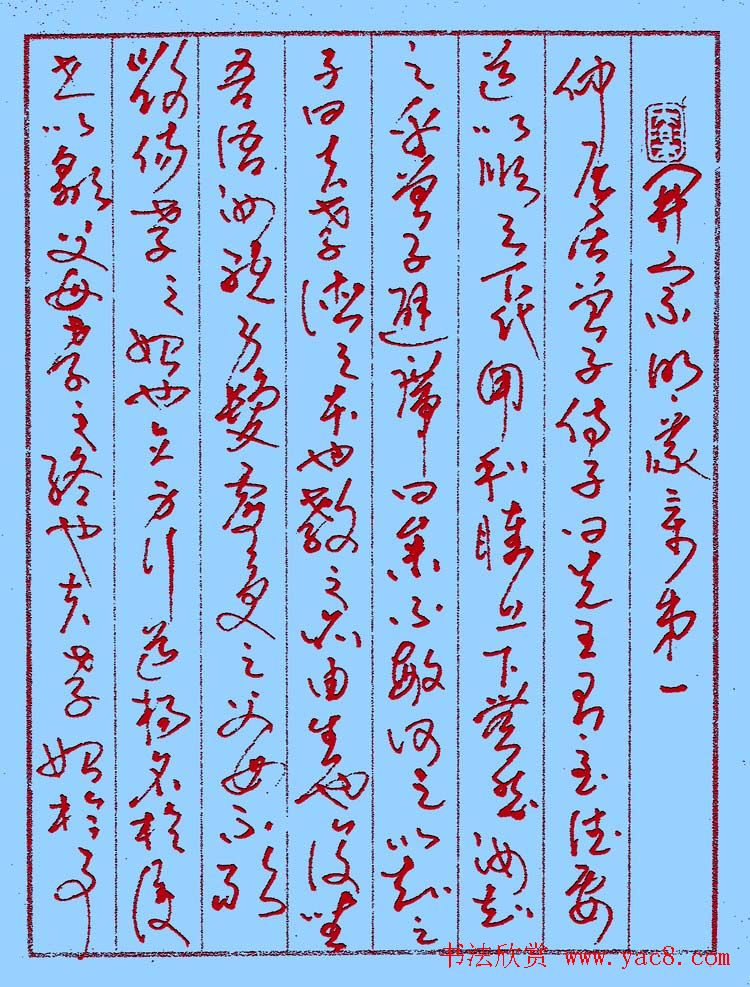 開宗明義章第一
仲尼居曾子侍子曰先王有至德要
道以順天下民用和睦上下無怨汝知
之乎曾子避席曰參不敏何足以知之
子曰夫孝德之本也教之所由生也復坐
吾語汝身體髮膚受之父母不敢
毀傷孝之始也立身行道揚名於後
世以顯父母孝之終也夫孝始於事
书法欣赏 www.yac8.com